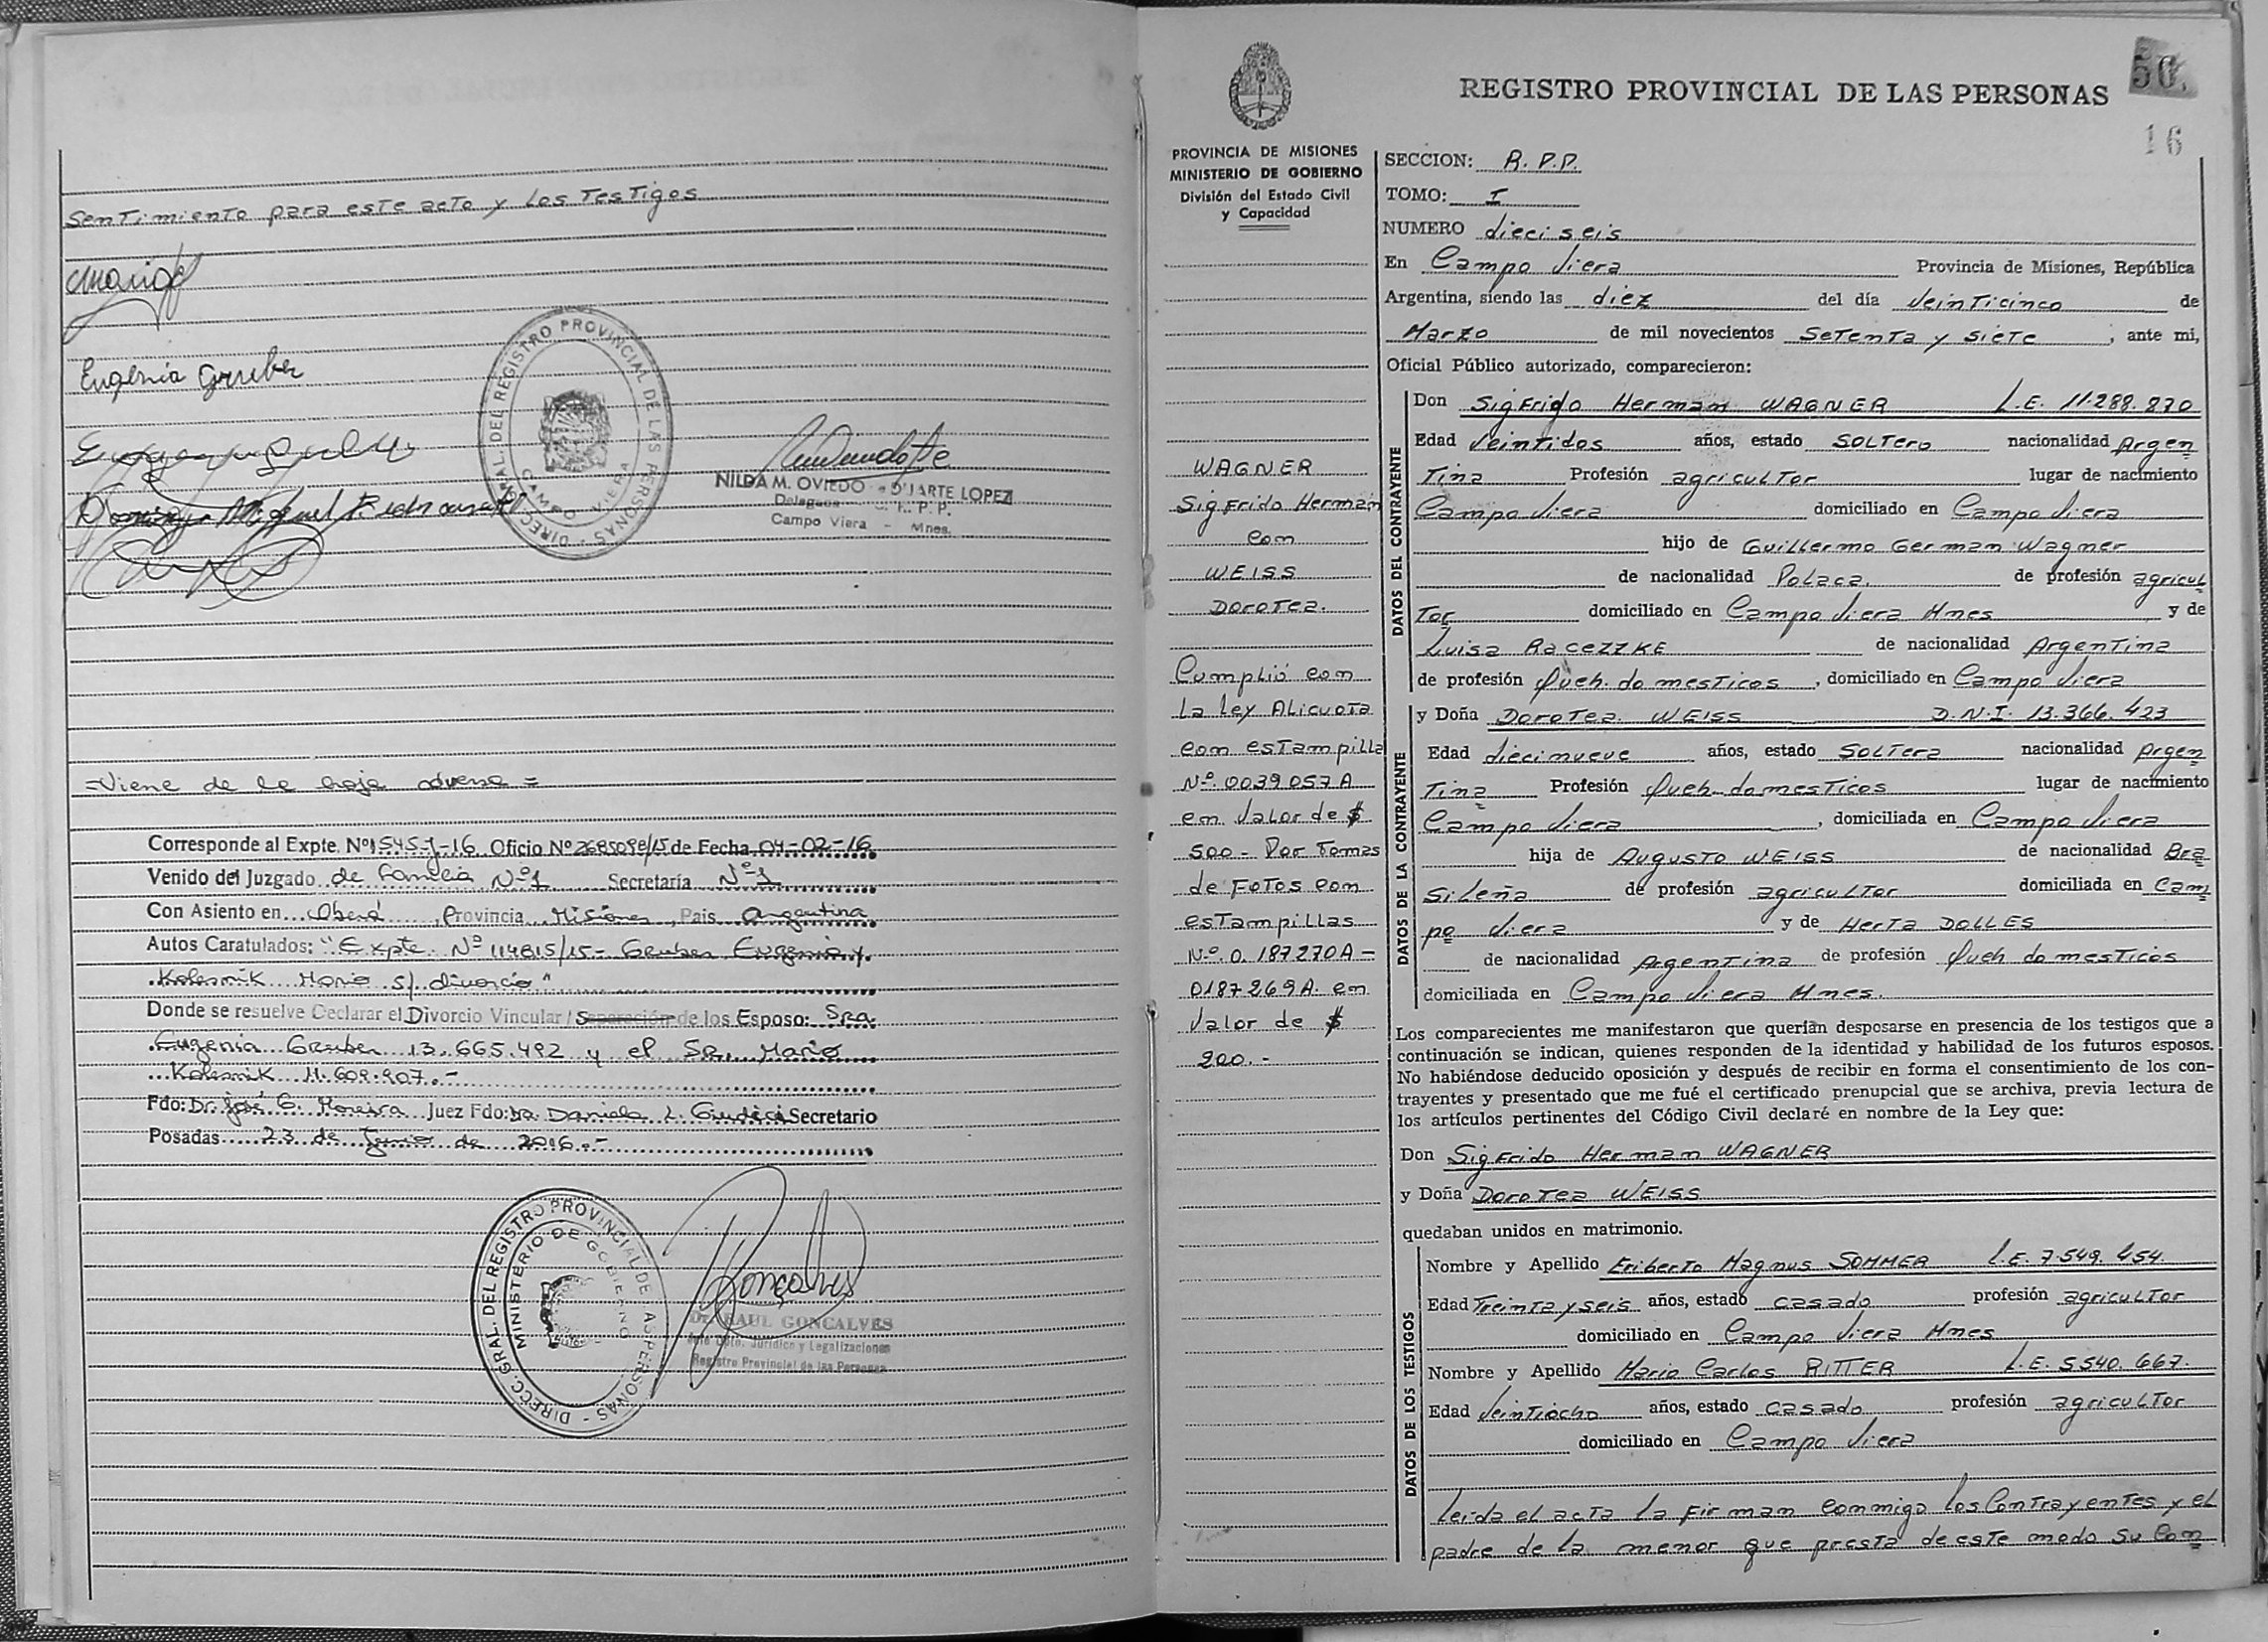 Sentimiento para este acto y los Testigos
Eugenia Gruber
DIRECC. GRAL. DEL REGISTRO PROVINCIAL DE LAS PERSONAS
CAMPO VIERA
NILDA M. OVIEDO de DUARTE LOPEZ
Campo Viera - Mnes.
=Viene de la hoja adversa=
Corresponde al Expte. Nº 1545-J-16 Oficio Nº de Fecha 04-02-16
Venido del Juzgado de Familia Nº1 Secretaría Nº1
Con Asiento en Oberá, Provincia Misiones, Pais Argentina
Autos Caratulados: "Expte. Nº 114815/15- Gruber Eugenia y
Kolesnik Mario s/ divorcio"
Donde se resuelve Declarar el Divorcio Vincular / Separación de los Esposo: Sra.
Eugenia Gruber 13.665.492 y el Sr. Mario
Kolesnik 11.609.907.-
Fdo: Dr. José G. Moreira Juez Fdo: Dra. Daniela L. Giudici Secretario
Posadas 23 de Junio de 2016.-
DIRECC. GRAL. DEL REGISTRO PROVINCIAL DE LAS PERSONAS
MINISTERIO DE GOBIERNO
Gonçalves
Dr. RAUL GONCALVES
Jefe Dpto. Jurídico y Legalizaciones
Registro Provincial de las Personas
REGISTRO PROVINCIAL DE LAS PERSONAS
50.
16
PROVINCIA DE MISIONES
MINISTERIO DE GOBIERNO
División del Estado Civil
y Capacidad
WAGNER
Sigfrido Herman
con
WEISS
Dorotea.
Cumplió con
la Ley Alicuota
con estampilla
Nº. 0039057A
en Valor de $
500- Por Tomas
de Fotos con
estampillas
Nº. 0.187270A-
0187269A. en
Valor de $
200.-
SECCION: R.P.P.
TOMO: I
NUMERO dieciseis
En Campo Viera Provincia de Misiones, República
Argentina, siendo las diez del día Veinticinco de
Marzo de mil novecientos Setenta y Siete, ante mi,
Oficial Público autorizado, comparecieron:
DATOS DEL CONTRAYENTE
Don Sigfrido Herman WAGNER L.E. 11.288.870
Edad Veintidos años, estado Soltero nacionalidad Argen
Tina Profesión agricultor lugar de nacimiento
Campo Viera domiciliado en Campo Viera
hijo de Guillermo German Wagner
de nacionalidad Polaca. de profesión agricul
Tor domiciliado en Campo Viera Mnes y de
Luisa RACEZZKE de nacionalidad Argentina
de profesión Queh. domesticos, domiciliado en Campo Viera
DATOS DE LA CONTRAYENTE
y Doña Dorotea WEISS D.N.I. 13.366.423
Edad diecinueve años, estado Soltera nacionalidad Argen
Tina Profesión Queh. domesticos lugar de nacimiento
Campo Viera, domiciliada en Campo Viera
hija de Augusto WEISS de nacionalidad Bra
Sileña de profesión agricultor domiciliada en Cam
po Viera y de Herta DOLLES
de nacionalidad Argentina de profesión Queh domesticos
domiciliada en Campo Viera Mnes.
Los comparecientes me manifestaron que querían desposarse en presencia de los testigos que a
continuación se indican, quienes responden de la identidad y habilidad de los futuros esposos.
No habiéndose deducido oposición y después de recibir en forma el consentimiento de los con-
trayentes y presentado que me fué el certificado prenupcial que se archiva, previa lectura de
los artículos pertinentes del Código Civil declaré en nombre de la Ley que:
Don Sigfrido Herman WAGNER
y Doña Dorotea WEISS
quedaban unidos en matrimonio.
DATOS DE LOS TESTIGOS
Nombre y Apellido Eriberto Magnus SOMMER L.E. 7.549.454.
Edad Treinta y seis años, estado casado profesión agricultor
domiciliado en Campo Viera Mnes
Nombre y Apellido Mario Carlos RITTER L.E. 5.540.667.
Edad Veintiocho años, estado casado profesión agricultor
domiciliado en Campo Viera
Leida el acta la Firman conmigo los Contrayentes y el
padre de la menor que presta de este modo su Con